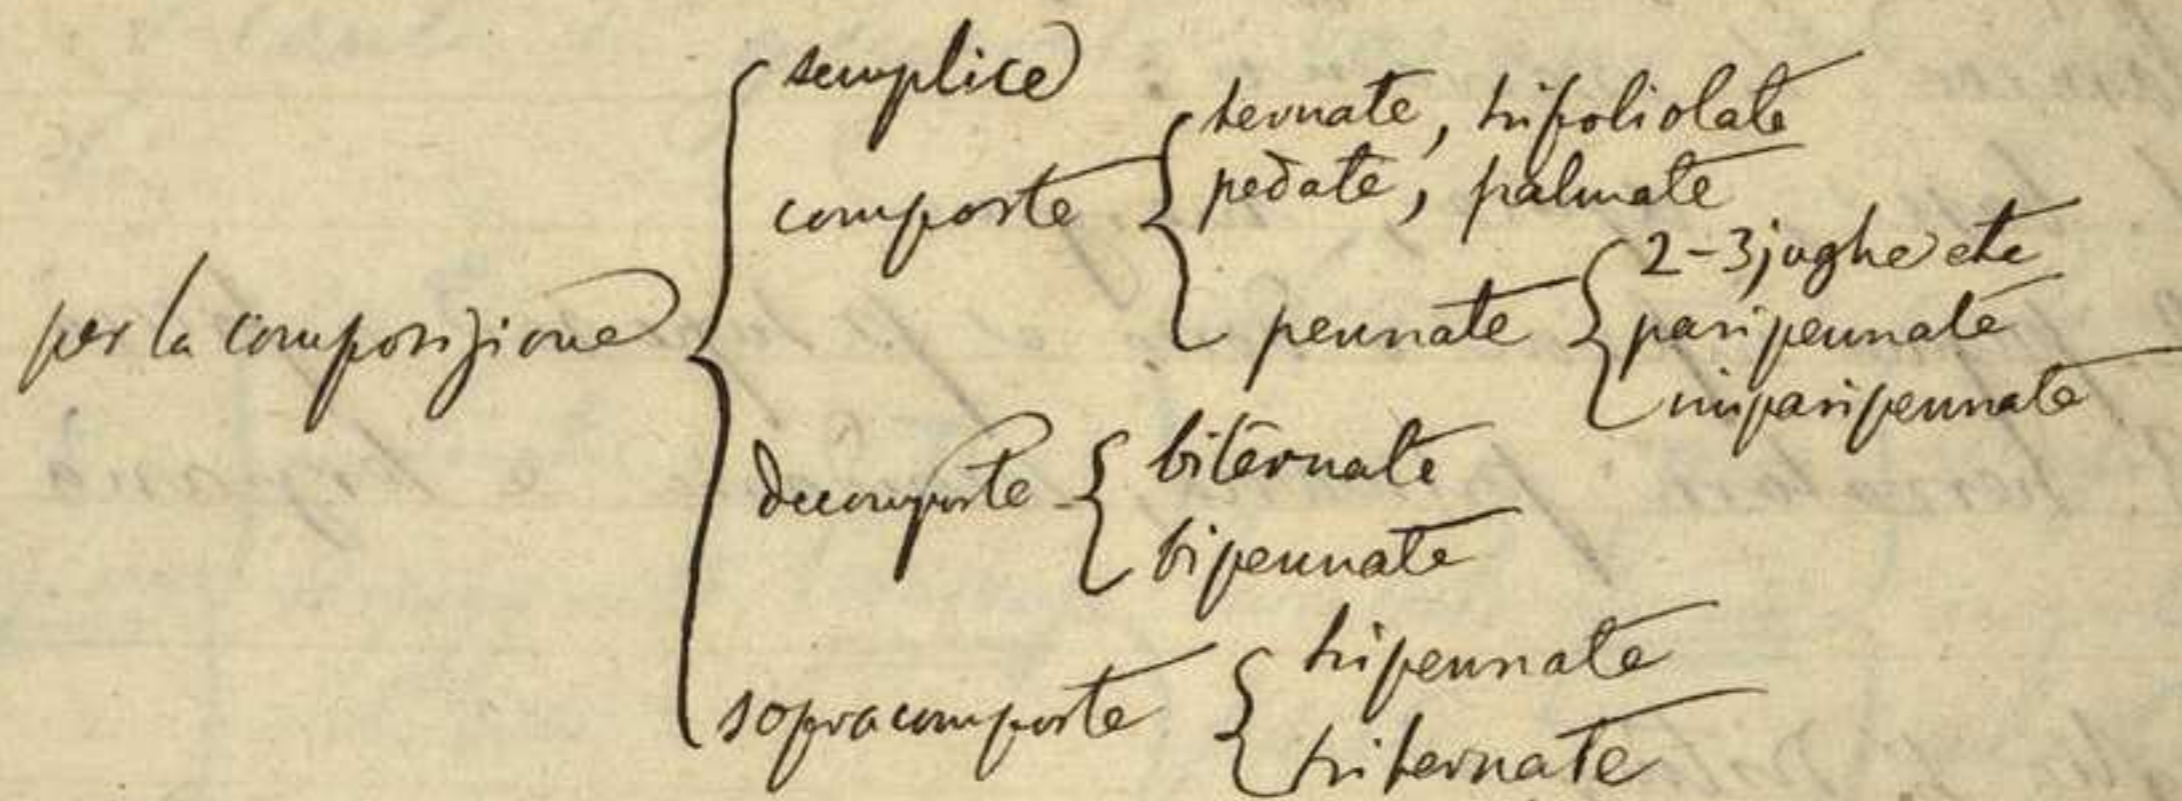 per la composizione
semplice
composte
ternate, trifoliolate
pedate, palmate
pennate
2-3jughe etc
paripennate
imparipennate
decomposte
biternate
bipennate
sopracomposte
tripennate
triternate